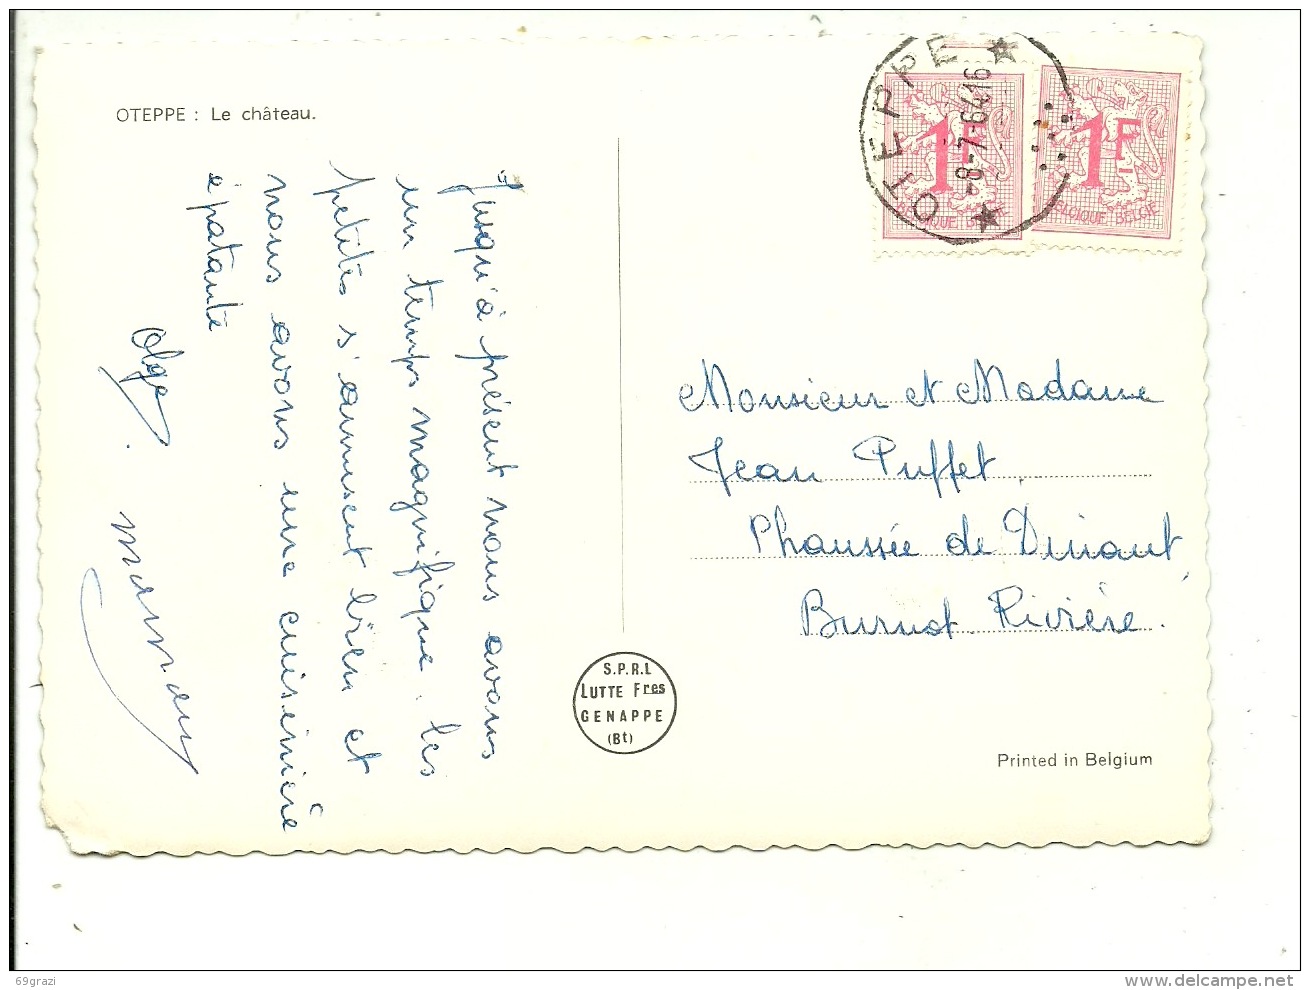 OTEPPE : Le château.
Jusqu'à présent nous avons
un temps magnifique. les
petites s'amusent bien et
nous avons une cuisinière
epatante
Olga.
OTEPPE
-8-7-6416
1F
BELGIQUE BELGIE
1F
BELGIQUE BELGIE
Monsieur et Madame
Jean Puffet
Chaussée de Dinant
Burnot. Rivière.
S.P.R.L
LUTTE Fres
GENAPPE
(Bt)
Printed in Belgium
69grazi
delcampe.net